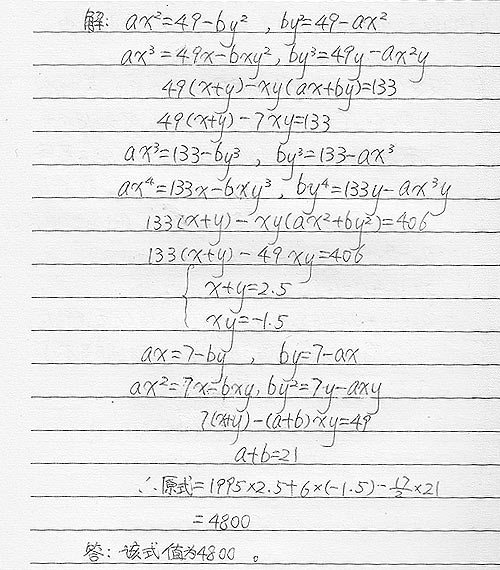 解: ax²=49-by² , by²=49-ax²
ax³=49x-bxy², by³=49y-ax²y
49(x+y)-xy(ax+by)=133
49(x+y)-7xy=133
ax³=133-by³ , by³=133-ax³
ax⁴=133x-bxy³, by⁴=133y-ax³y
133(x+y)-xy(ax²+by²)=406
133(x+y)-49xy=406
{ x+y=2.5
xy=-1.5
ax=7-by , by=7-ax
ax²=7x-bxy, by²=7y-axy
7(x+y)-(a+b)xy=49
a+b=21
∴原式=1995×2.5+6×(-1.5)-17/2×21
=4800
答: 该式值为4800 。